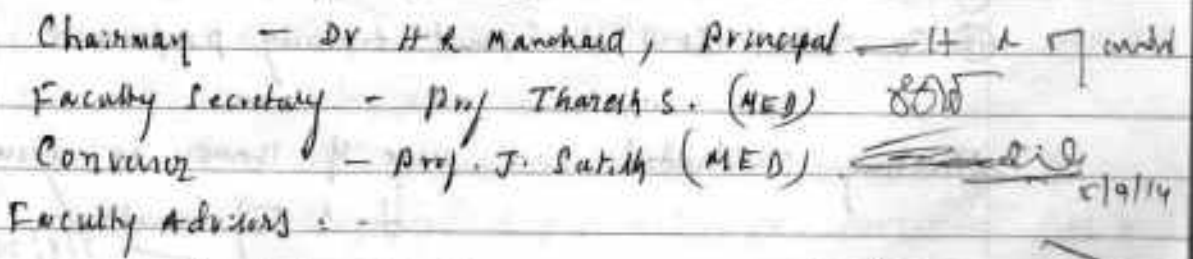 Chairman - Dr H R Manohara, Principal - H R
Faculty Secretary - Prof Tharesh S. (MED)
Convenor - Prof. J. Satish (MED)
5/9/14
Faculty Advisors : -